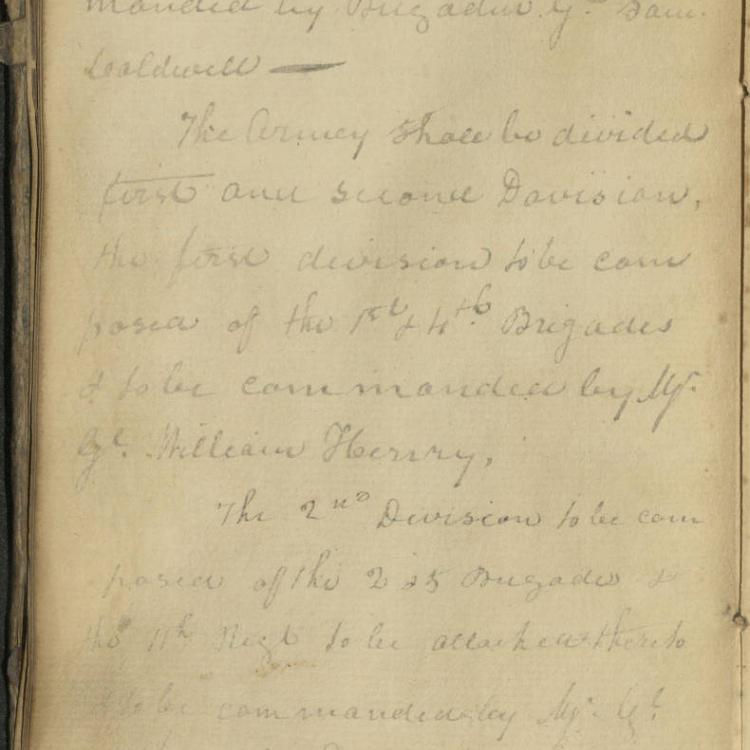 manded by Brigadier Gl. Saml.
Caldwell —
The Armey shall be divided
first and second Davision,
the first devision to be com
posed of the 1st & 4th Brigades
& to be commanded by Mjr.
Gl. William Henrry,
The 2nd Devision to be com
posed of the 2 & 5 Brigade &
the 11th Regt to be attached thereto
& to be commanded by Mjr. Gl.